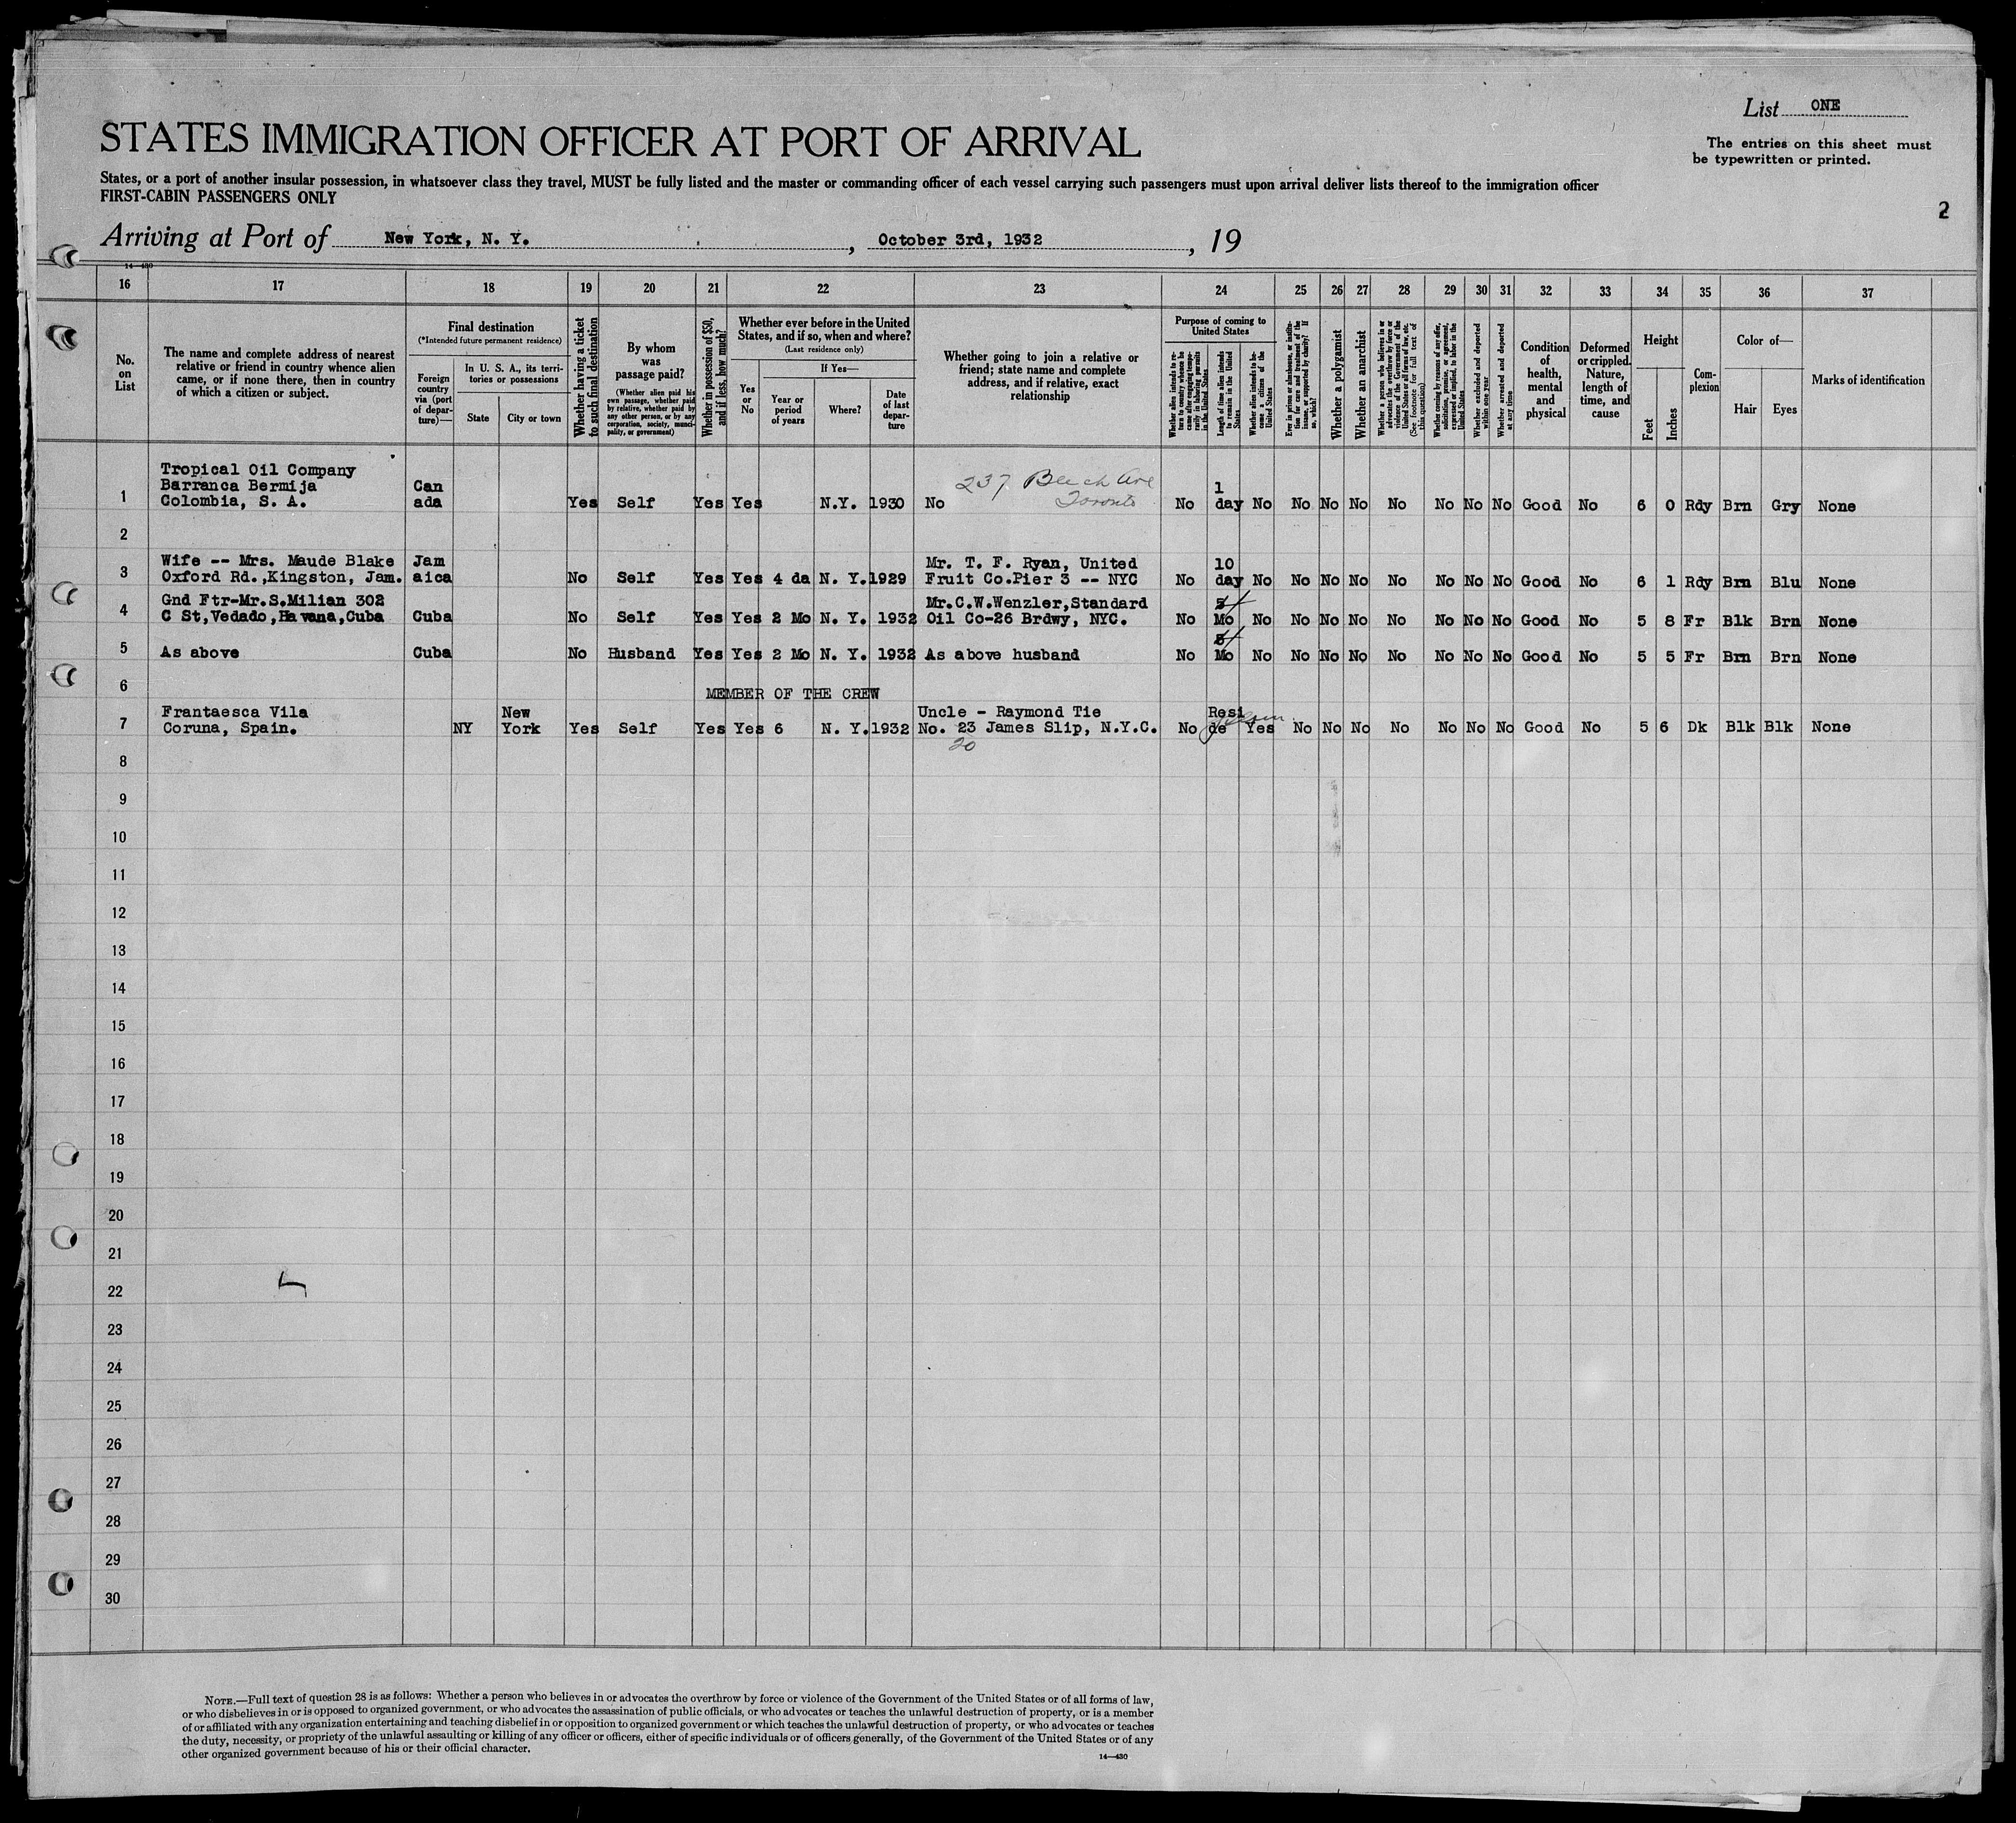 List ONE
The entries on this sheet must
be typewritten or printed.
STATES IMMIGRATION OFFICER AT PORT OF ARRIVAL
States, or a port of another insular possession, in whatsoever class they travel, MUST be fully listed and the master or commanding officer of each vessel carrying such passengers must upon arrival deliver lists thereof to the immigration officer
FIRST-CABIN PASSENGERS ONLY
2
Arriving at Port of New York, N. Y. , October 3rd, 1932 , 19
14-430
16 17 18 19 20 21 22 23 24 25 26 27 28 29 30 31 32 33 34 35 36 37
No.
on
List
The name and complete address of nearest
relative or friend in country whence alien
came, or if none there, then in country
of which a citizen or subject.
Final destination
(*Intended future permanent residence)
Foreign
country
via (port
of depar-
ture)—
In U. S. A., its terri-
tories or possessions
State
City or town
Whether having a ticket
to such final destination
By whom
was
passage paid?
(Whether alien paid his
own passage, whether paid
by relative, whether paid by
any other person, or by any
corporation, society, munci-
pality, or government)
Whether in possession of $50,
and if less, how much?
Whether ever before in the United
States, and if so, when and where?
(Last residence only)
Yes
or
No
If Yes—
Year or
period
of years
Where?
Date
of last
depar-
ture
Whether going to join a relative or
friend; state name and complete
address, and if relative, exact
relationship
Purpose of coming to
United States
Whether alien intends to re-
turn to country whence he
came after engaging tempo-
rarily in laboring pursuits
in the United States
Length of time alien intends
to remain in the United
States
Whether alien intends to be-
come a citizen of the
United States
Ever in prison or almshouse, or institu-
tion for care and treatment of the
insane, or supported by charity? If
so, which?
Whether a polygamist
Whether an anarchist
Whether a person who believes in or
advocates the overthrow by force or
violence of the Government of the
United States or all forms of law, etc.
(See footnote for full text of
this question)
Whether coming by reasons of any offer,
solicitation, promise, or agreement,
expressed or implied, to labor in the
United States
Whether excluded and deported
within one year
Whether arrested and deported
at any time
Condition
of
health,
mental
and
physical
Deformed
or crippled.
Nature,
length of
time, and
cause
Height
Feet
Inches
Com-
plexion
Color of—
Hair
Eyes
Marks of identification
Tropical Oil Company
Barranca Bermija Can 237 Beech Ave 1
1 Colombia, S. A. ada Yes Self Yes Yes N.Y. 1930 No Toronto No day No No No No No No No No Good No 6 0 Rdy Brn Gry None
2
Wife -- Mrs. Maude Blake Jam Mr. T. F. Ryan, United 10
3 Oxford Rd.,Kingston, Jam. aica No Self Yes Yes 4 da N. Y. 1929 Fruit Co.Pier 3 -- NYC No day No No No No No No No No Good No 6 1 Rdy Brn Blu None
Gnd Ftr-Mr.S.Milian 302 Mr.C.W.Wenzler,Standard
4 C St,Vedado,Havana,Cuba Cuba No Self Yes Yes 2 Mo N. Y. 1932 Oil Co-26 Brdwy, NYC. No Mo No No No No No No No No Good No 5 8 Fr Blk Brn None
5 As above Cuba No Husband Yes Yes 2 Mo N. Y. 1932 As above husband No Mo No No No No No No No No Good No 5 5 Fr Brn Brn None
6 MEMBER OF THE CREW
Frantaesca Vila New Uncle - Raymond Tie Resi
7 Coruna, Spain. NY York Yes Self Yes Yes 6 N. Y. 1932 No. 23 James Slip, N.Y.C. No de Yes No No No No No No No Good No 5 6 Dk Blk Blk None
20
8
9
10
11
12
13
14
15
16
17
18
19
20
21
22
23
24
25
26
27
28
29
30
NOTE.—Full text of question 28 is as follows: Whether a person who believes in or advocates the overthrow by force or violence of the Government of the United States or of all forms of law,
or who disbelieves in or is opposed to organized government, or who advocates the assassination of public officials, or who advocates or teaches the unlawful destruction of property, or is a member
of or affiliated with any organization entertaining and teaching disbelief in or opposition to organized government or which teaches the unlawful destruction of property, or who advocates or teaches
the duty, necessity, or propriety of the unlawful assaulting or killing of any officer or officers, either of specific individuals or of officers generally, of the Government of the United States or of any
other organized government because of his or their official character.
14—430